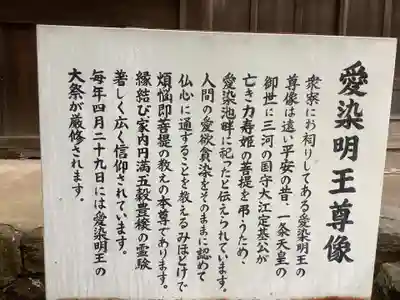 愛染明王尊像
衆寮にお祠りしてある愛染明王の
尊像は遠い平安の昔、一条天皇の
御世に三河の国守大江定基公が
亡き力寿姫の菩提を弔うため、
愛染池畔に祀ったと伝えられています。
人間の愛欲貪染をそのままに認めて
仏心に通ずることを教えるみほとけで
煩悩即菩提の教えの本尊であります。
縁結び家内円満五穀豊穣の霊験
著しく広く信仰されています。
毎年四月二十九日には愛染明王の
大祭が厳修されます。